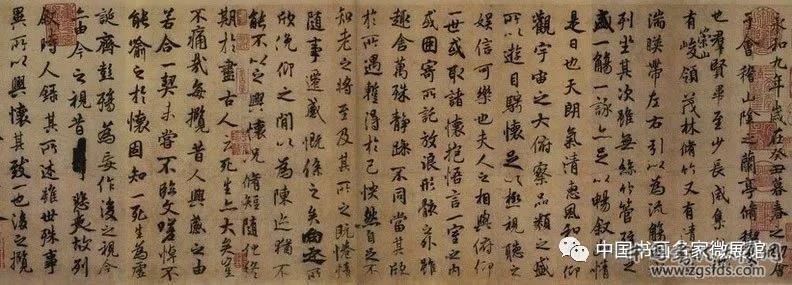 永和九年歲在癸丑暮春之初會
于會稽山陰之蘭亭脩禊
也羣賢畢至少長咸集
有崇山峻領茂林脩竹又有清
湍暎帶左右引以為流觴
列坐其次雖無絲竹管弦之
盛一觴一詠亦足以暢敘幽情
是日也天朗氣清惠風和暢仰
觀宇宙之大俯察品類之盛
所以遊目騁懷足以極視聽之
娛信可樂也夫人之相與俯仰
一世或取諸懷抱悟言一室之內
或因寄所託放浪形骸之外雖
趣舍萬殊靜躁不同當其欣
於所遇蹔得於己怏然自足不
知老之將至及其所之既惓情
隨事遷感慨係之矣向之所
欣俛仰之間以為陳迹猶不
能不以之興懷況脩短隨化終
期於盡古人云死生亦大矣豈
不痛哉每攬昔人興感之由
若合一契未嘗不臨文嗟悼不
能喻之於懷固知一死生為虛
誕齊彭殤為妄作後之視今
亦由今之視昔悲夫故列
敘時人錄其所述雖世殊事
異所以興懷其致一也後之攬
中国书画名家微展馆
www.zgsfds.com